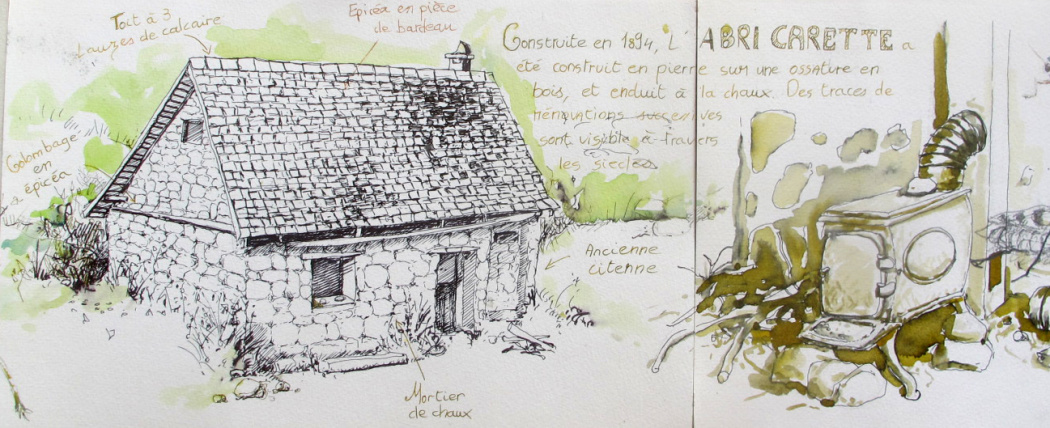 Toit à 3
Lauzes de calcaire
Epicéa en pièce
de bardeau
Colombage
en
épicéa
Construite en 1894, L' ABRI CARETTE a
été construit en pierre sur une ossature en
bois, et enduit à la chaux. Des traces de
rénovations successives
sont visible à travers
les siècles
Ancienne
citenne
Mortier
de chaux